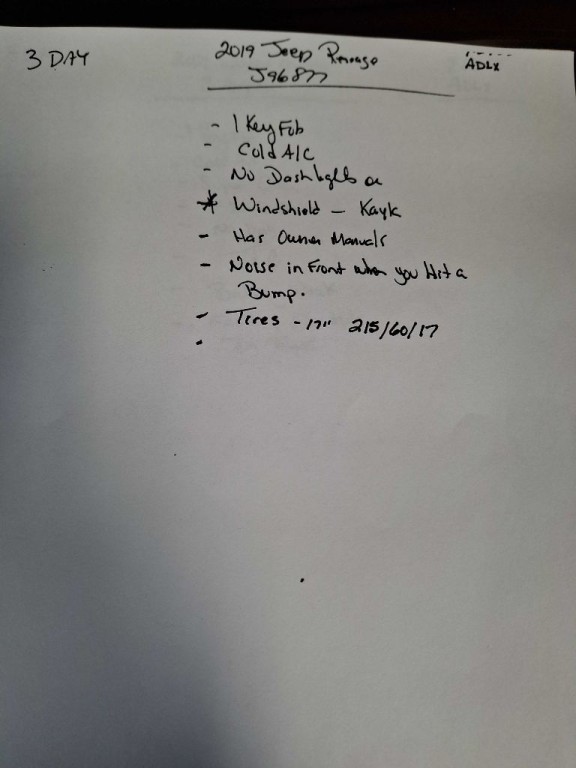 3 DAY
2019 Jeep Renegade
J96877
ADLX
- 1 Key Fob
- Cold A/C
- No Dash lights on
* Windshield - Kayk
- Has Owner Manuals
- Noise in Front when you Hit a
Bump.
- Tires - 17" 215/60/17
-